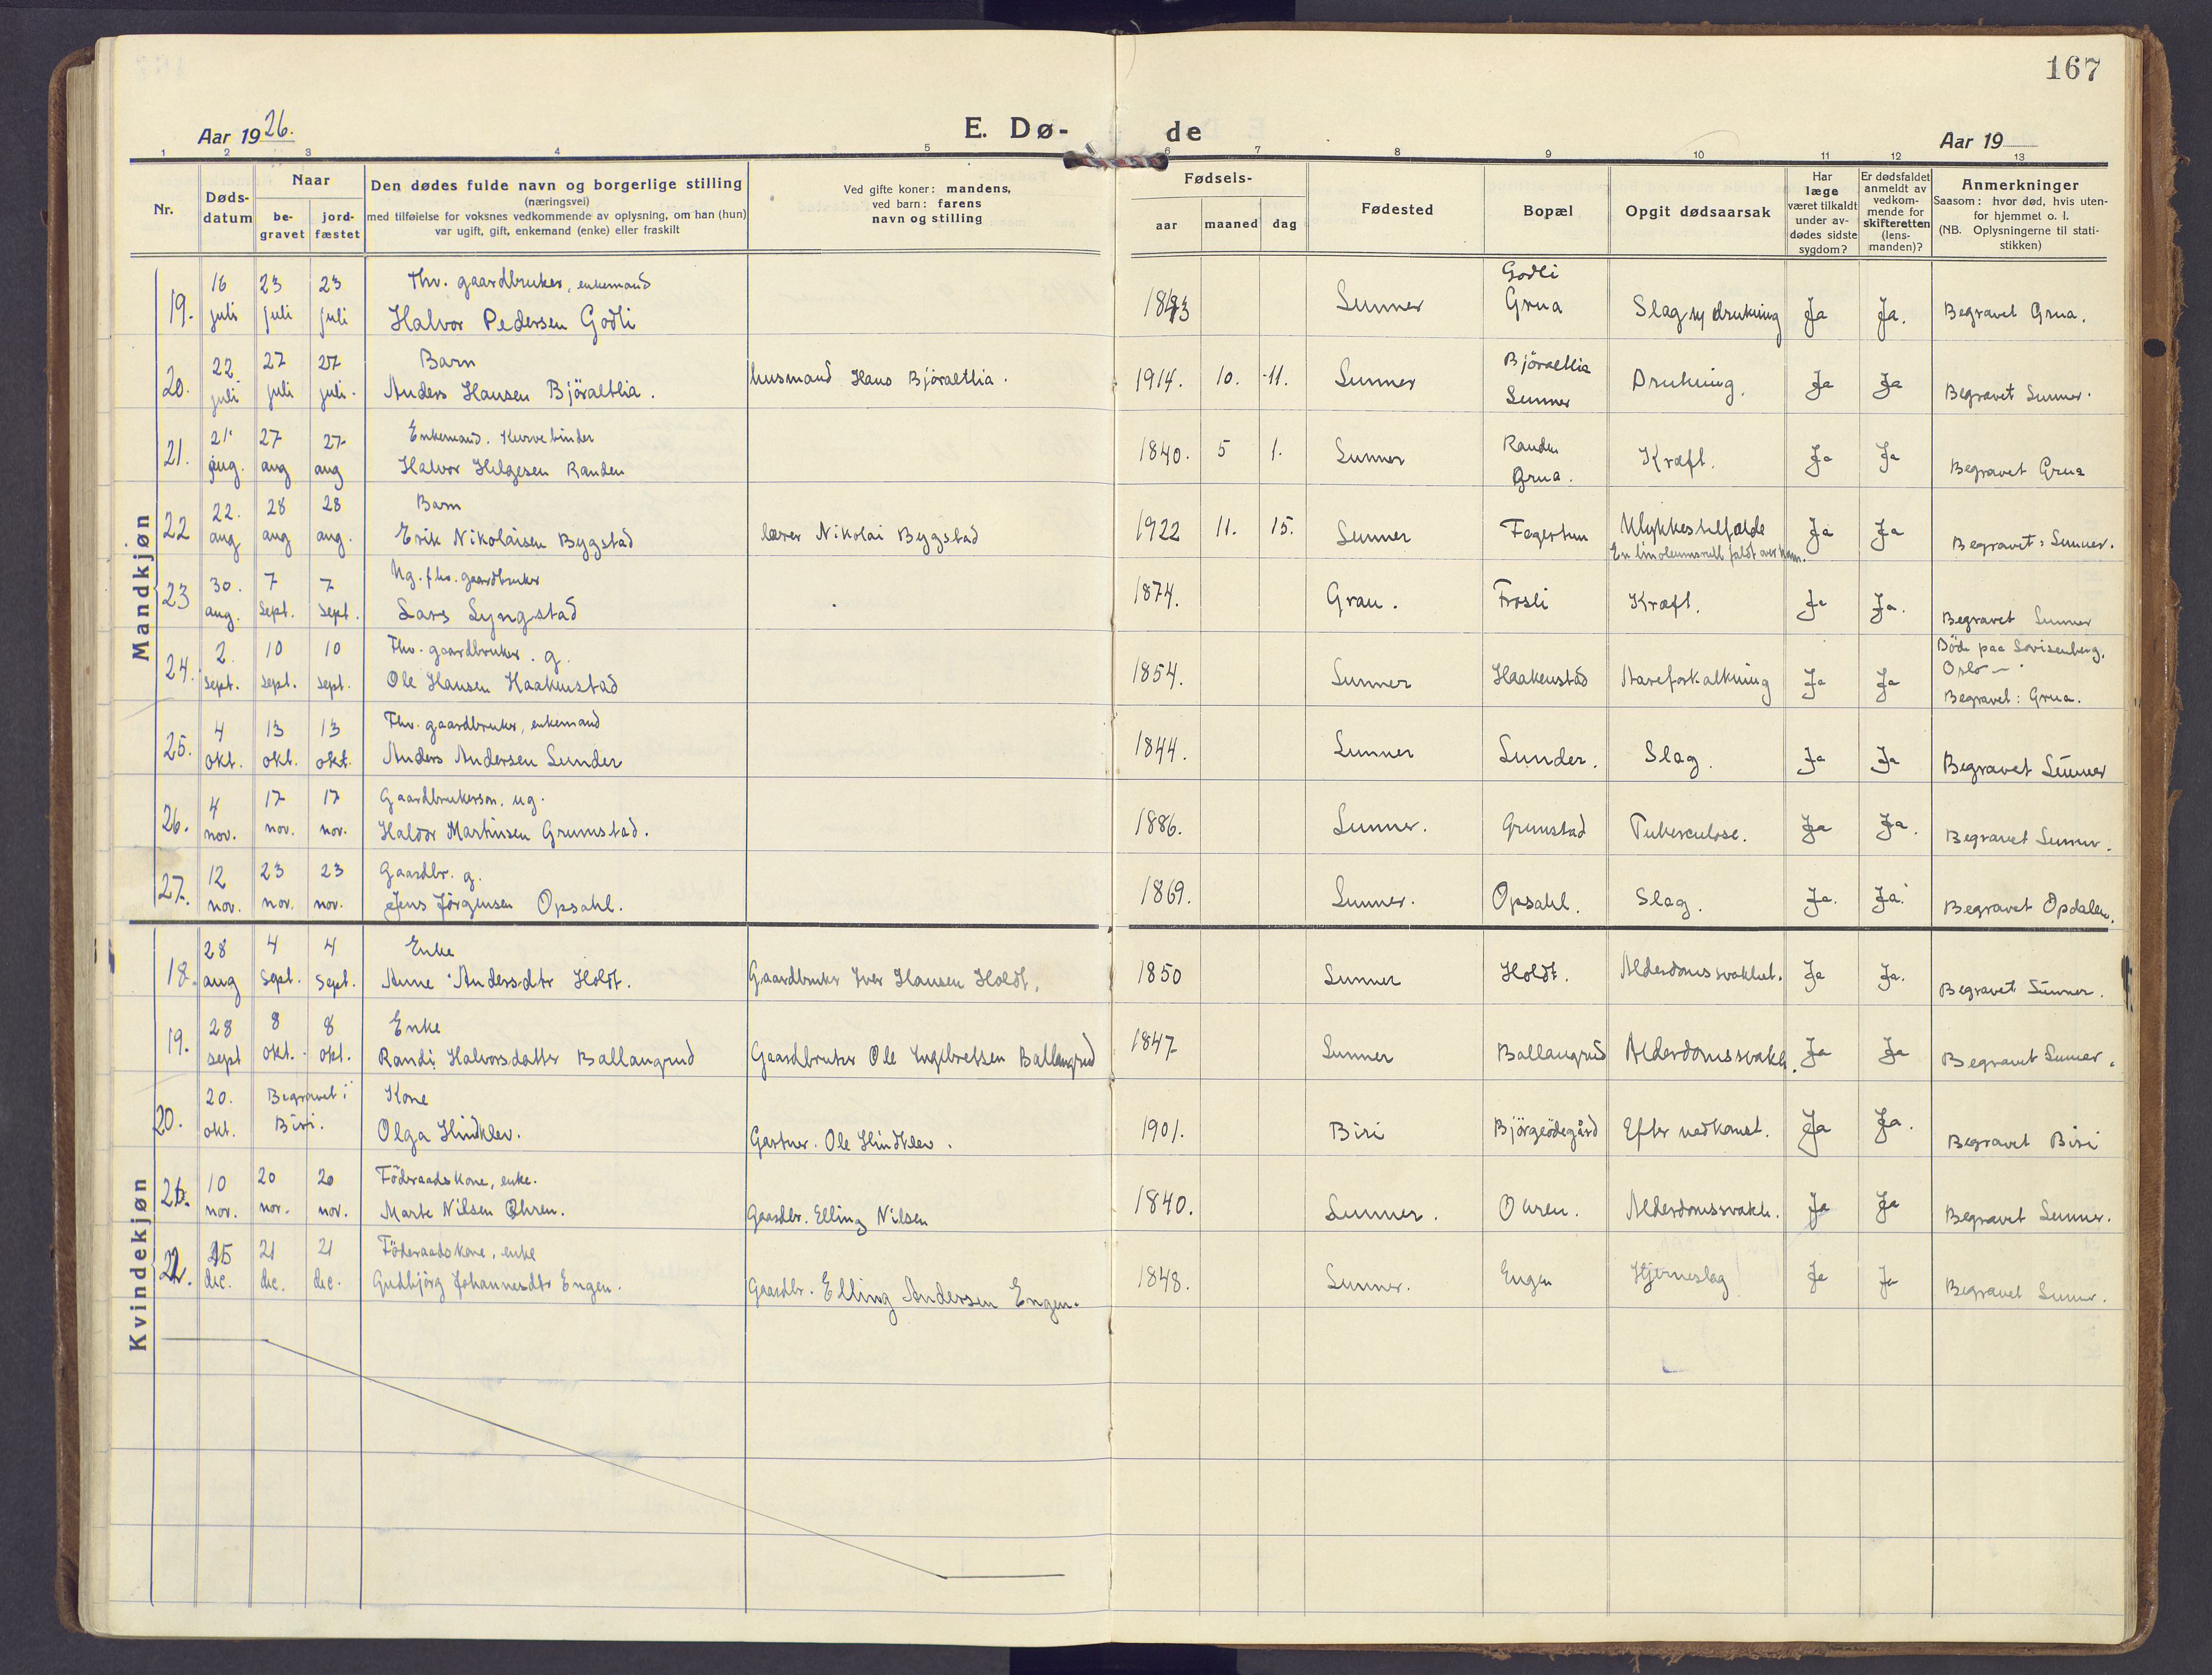 167
Aar 1926.
E. Dø-
de
Aar 19
1 2 3 4 5 6 7 8 9 10 11 12 13
Nr.
Døds-
datum
Naar
be-
gravet
jord-
fæstet
Den dødes fulde navn og borgerlige stilling
(næringsvei)
med tilføielse for voksnes vedkommende av oplysning, om han (hun)
var ugift, gift, enkemand (enke) eller fraskilt
Ved gifte koner: mandens,
ved barn: farens
navn og stilling
Fødsels-
aar maaned dag
Fødested
Bopæl
Opgit dødsaarsak
Har
læge
været tilkaldt
under av-
dødes sidste
sygdom?
Er dødsfaldet
anmeldt av
vedkom-
mende for
skifteretten
(lens-
manden)?
Anmerkninger
Saasom: hvor død, hvis uten-
for hjemmet o. l.
(NB. Oplysningerne til stati-
stikken)
Mandkjøn
16 23 23 Fhv. gaardbruker, enkemand Godli
19. juli juli juli Halvor Pedersen Godli 1843 Lunner Grua Slag og drukning Ja Ja. Begravet Grua.
22 27 27 Barn Björaltlia
20. juli juli juli. Anders Hansen Björaltlia. husmand Hans Björaltlia. 1914. 10. 11. Lunner Lunner Drukning. Ja Ja Begravet Lunner.
21 27 27 Enkemand. Kurvebinder Randen
21. aug. aug aug Halvor Helgesen Randen 1840. 5 1. Lunner Grua. Kræft. Ja Ja Begravet Grua
22. 28 28 Barn
22 aug aug aug. Erik Nikolaisen Bygstad lærer Nikolai Bygstad 1922 11. 15. Lunner Fagertun Ulykkestilfælde Ja Ja Begravet: Lunner.
En linoleumsrull faldt over ham.
30. 7 7 Ug. fhv. gaardbruker
23 aug. Sept. Sept. Lars Lyngstad 1874. Gran. Frøsli Kræft. Ja Ja. Begravet Lunner
2. 10 10 Fhv. gaardbruker. g. Döde paa Lovisenberg,
Oslo —
24. sept. sept. sept. Ole Hansen Haakenstad 1854. Lunner Haakenstad Aareforkalkning Ja Ja Begravet: Grua.
4 13 13 Fhv. gaardbruker, enkemand
25. okt. okt. okt. Anders Andersen Lunder 1844. Lunner Lunder. Slag. Ja Ja Begravet Lunner
4 17 17 Gaardbrukersøn. ug.
26. nov. nov. nov. Haldor Martinsen Grumstad. 1886. Lunner. Grumstad Tuberculose. Ja Ja. Begravet Lunner.
12 23 23 Gaardbr. g.
27. nov. nov. nov. Jens Jörgensen Opsahl. 1869. Lunner. Opsahl. Slag. Ja. Ja. Begravet Opdalen.
Kvindekjøn
28 4 4 Enke
18. aug Sept. Sept. Anne Andersdtr Holdt. Gaardbruker Iver Hansen Holdt. 1850 Lunner Holdt. Alderdomssvakhet. Ja Ja. Begravet Lunner.
28 8 8 Enke
19. sept okt. okt. Randi Halvorsdatter Ballangrud Gaardbruker Ole Engebretsen Ballangrud 1847 Lunner Ballangrud Alderdomssvakh. Ja Ja Begravet Lunner.
20. Begravet i Kone
20. okt. Biri. Olga Hindklev. Gartner. Ole Hindklev. 1901. Biri Björgeödegård Efter nedkomst. Ja Ja. Begravet Biri
10 20 20 Föderaadskone, enke.
21. nov. nov. nov. Marte Nilsen Ohren. Gaardbr. Elling Nilsen 1840. Lunner. Ohren. Alderdomssvakh. Ja Ja Begravet Lunner.
15 21 21 Föderaadskone, enke
22. dec. dec. dec. Gudbjörg Johannesdtr Engen. Gaardbr. Elling Andersen Engen. 1848. Lunner. Engen Hjerneslag Ja Ja Begravet Lunner.